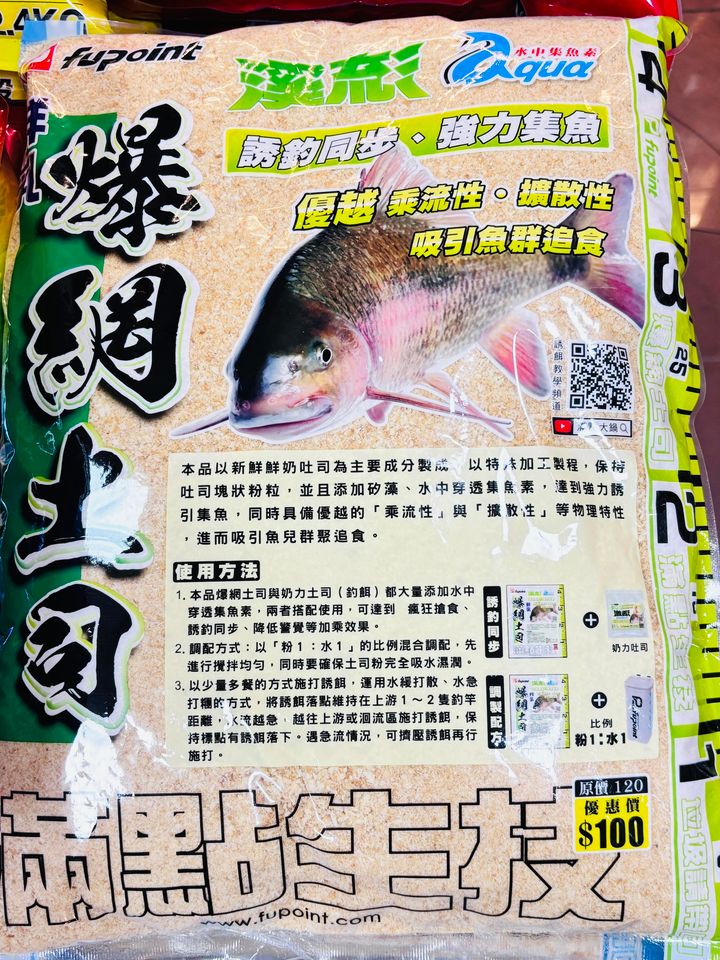 fupoint
溪流
水中集魚素
Aqua
誘釣同步、強力集魚
優越 乘流性。擴散性
吸引魚群追食
爆網土司
誘餌教學頻道
大鍋
本品以新鮮鮮奶吐司為主要成分製成，以特殊加工製程，保持
吐司塊狀粉粒，並且添加矽藻、水中穿透集魚素，達到強力誘
引集魚，同時具備優越的「乘流性」與「擴散性」等物理特性
，進而吸引魚兒群聚追食。
使用方法
1. 本品爆網土司與奶力土司（釣餌）都大量添加水中
穿透集魚素，兩者搭配使用，可達到 瘋狂搶食、
誘釣同步、降低警覺等加乘效果。
2. 調配方式：以「粉1：水1」的比例混合調配，先
進行攪拌均勻，同時要確保土司粉完全吸水濕潤。
3. 以少量多餐的方式施打誘餌，運用水緩打散、水急
打糰的方式，將誘餌落點維持在上游1～2隻釣竿
距離，水流越急，越往上游或洄流區施打誘餌，保
持標點有誘餌落下。遇急流情況，可擠壓誘餌再行
施打。
誘釣同步
爆網土司
+
奶力吐司
調製配方
爆網土司
+
Fupoint
比例
粉1：水1
原價 120
優惠價
$100
滿點生技
www.fupoint.com
4
Fupoint
3
25
爆網土司
2
滿點生技
1